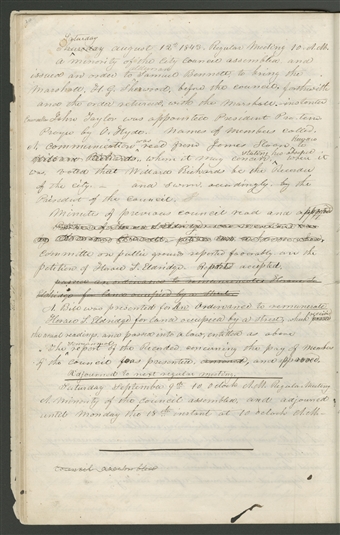 Saturday
Thursday August 12th 1843. Regular Meeting 10. A.M.
A minority of the City Council assembled and
adjourned
issued an order to Samuel Bennett to bring the
Marshall, H. G. Sherwood, before the council, forthwith
and the order returned, with the Marshall, instanter
John Taylor was appointed President Pro. tem
Prayer by O. Hyde. Names of members called.
A communication was read from James Sloan to
Willard Richards, where it may concern, when it
was voted that Willard Richards be the Recorder
of the city. and sworn, accordingly, by the
President of the council.
Minutes of previous council read and approved
Committee on public ground reported favorably on the
petition of Horace S. Eldridge. Report accepted.
A Bill was presented for An Ordinance to remunerate
Horace S. Eldridge for land occupied by a street, which
the readings and passed into a law, entitled as above
The report of the Recorder concerning the pay of members
of the council was presented, and approved
Adjourned to next regular meeting.
Saturday September 9th. 10. o'clock A.M. Regular Meeting
A minority of the council assembled and adjourned
until Monday the 18th instant at 10 o'clock A.M.
council assembled